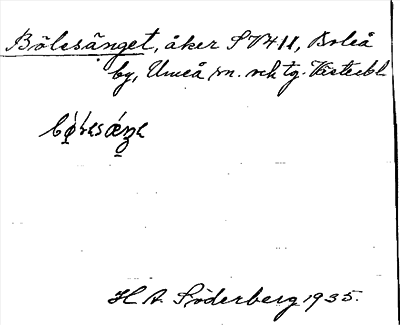 Bölesänget, åker S V4 11, Boleå
by, Umeå sn. och tg. Västerbl.
H A Söderberg 1935.